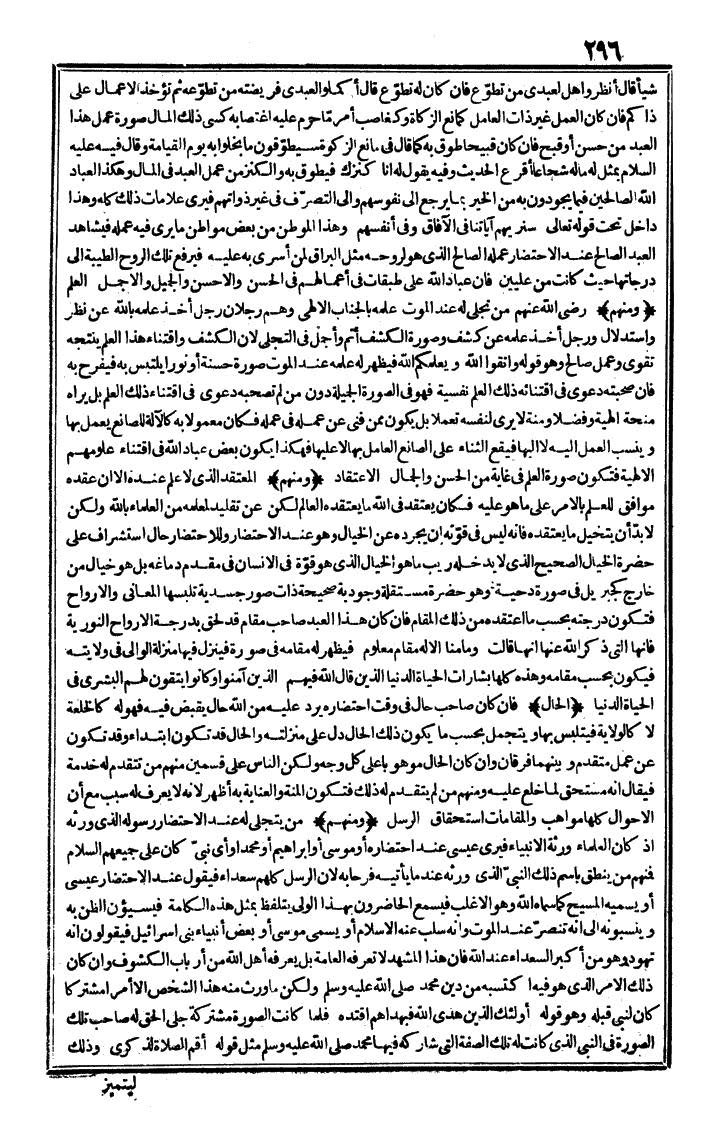 ٢٩٦
شيأ قال أنظروا هل لعبدى من تطوّع فان كان له تطوّع قال أكملوا لعبدى فريضته من تطوّعه ثم تؤخذ الاعمال على
ذاكم فان كان العمل غير ذات العامل كمانع الزكاة وكغاصب أمر ما حرم عليه اغتصابه كسى ذلك المال صورة عمل هذا
العبد من حسن أو قبيح فان كان قبيحا طوق به كما قال فى مانع الزكوة سيطوّقون ما بخلوا به يوم القيامة وقال فيه عليه
السلام يمثل له ماله شجاعا أقرع الحديث وفيه يقول له انا كنزك فيطوق به والكنز من عمل العبد فى المال وهكذا العباد
الله الصالحين فيما يجودون به من الخير بما يرجع الى نفوسهم والى التصرّف فى غير ذواتهم فيرى علامات ذلك كله وهذا
داخل تحت قوله تعالى سنريهم آياتنا فى الآفاق وفى أنفسهم وهذا الموطن من بعض مواطن ما يرى فيه عمله فيشاهد
العبد الصالح عند الاحتضار عمله الصالح الذى هو لروحه مثل البراق لمن أسرى به عليه فيرفع تلك الروح الطيبة الى
درجاتها حيث كانت من عليين فان عباد الله على طبقات فى أعمالهم فى الحسن والاحسن والجميل والاجمل العلم
﴿ومنهم﴾ رضى الله عنهم من تجلى له عند الموت علمه بالجناب الالهى وهم رجلان رجل أخذ علمه بالله عن نظر
واستدلال ورجل أخذ علمه عن كشف وصورة الكشف أتم وأجل فى التجلى لان الكشف واقتناء هذا العلم ينتجه
تقوى وعمل صالح وهو قوله واتقوا الله ويعلمكم الله فيظهر له علمه عند الموت صورة حسنة أو نورا يلتبس به فيفرح به
فان صحبته دعوى فى اقتنائه ذلك العلم نفسية فهو فى الصورة الجميلة دون من لم تصحبه دعوى فى اقتناء ذلك العلم بل يراه
منحة الهية وفضلا ومنة لا يرى لنفسه تعملا بل يكون ممن فنى عن عمله فى عمله فكان معمولا به كالآلة للصانع يعمل بها
وينسب العمل اليه لا اليها فيقع الثناء على الصانع العامل بها لا عليها فهكذا يكون بعض عباد الله فى اقتناء علومهم
الالهية فتكون صورة العلم فى غاية من الحسن والجمال الاعتقاد ﴿ومنهم﴾ المعتقد الذى لا علم عنده الا ان عقده
موافق للعلم بالامر على ما هو عليه فكان يعتقد فى الله ما يعتقده العالم لكن عن تقليد لمعلمه من العلماء بالله ولكن
لا بدّ أن يتخيل ما يعتقده فانه ليس فى قوّته ان يجرده عن الخيال وهو عند الاحتضار وللاحتضار حال استشراف على
حضرة الخيال الصحيح الذى لا يدخله ريب ما هو الخيال الذى هو قوّة فى الانسان فى مقدم دماغه بل هو خيال من
خارج كجبريل فى صورة دحية وهو حضرة مستقلة وجودية صحيحة ذات صور جسدية تلبسها المعانى والارواح
فتكون درجته بحسب ما اعتقده من ذلك المقام فان كان هذا العبد صاحب مقام قد لحق بدرجة الارواح النورية
فانها التى ذكر الله عنها انها قالت وما منا الا له مقام معلوم فيظهر له مقامه فى صورة فينزل فيها منزلة الوالى فى ولايته
فيكون بحسب مقامه وهذه كلها بشارات الحياة الدنيا الذين قال الله فيهم الذين آمنوا وكانوا يتقون لهم البشرى فى
الحياة الدنيا ﴿الحال﴾ فان كان صاحب حال فى وقت احتضاره يرد عليه من الله حال يقبض فيه فهو له كالخلعة
لا كالولاية فيتلبس بها ويتجمل بحسب ما يكون ذلك الحال دل على منزلته والحال قد تكون ابتداء وقد تكون
عن عمل متقدم وبينهما فرقان وان كان الحال موهوبا على كل وجه ولكن الناس على قسمين منهم من تتقدم له خدمة
فيقال انه مستحق لما خلع عليه ومنهم من لم يتقدم له ذلك فتكون المنة والعناية به أظهر لانه لا يعرف له سبب مع أن
الاحوال كلها مواهب والمقامات استحقاق الرسل ﴿ومنهم﴾ من يتجلى له عند الاحتضار رسوله الذى ورثه
اذ كان العلماء ورثة الانبياء فيرى عيسى عند احتضاره أو موسى أو ابراهيم أو محمدا أو أى نبىّ كان على جميعهم السلام
فمنهم من ينطق باسم ذلك النبىّ الذى ورثه عند ما يأتيه فرحا به لان الرسل كلهم سعداء فيقول عند الاحتضار عيسى
أو يسميه المسيح كما سماه الله وهو الاغلب فيسمع الحاضرون بهذا الولى يتلفظ بمثل هذه الكلمة فيسيؤن الظن به
وينسبونه الى انه تنصر عند الموت وانه سلب عنه الاسلام أو يسمى موسى أو بعض أنبياء بنى اسرائيل فيقولون انه
تهود وهو من أكبر السعداء عند الله فان هذا المشهد لا تعرفه العامة بل يعرفه أهل الله من أرباب الكشوف وان كان
ذلك الامر الذى هو فيه اكتسبه من دين محمد صلى الله عليه وسلم ولكن ما ورث منه هذا الشخص الا أمرا مشتركا
كان لنبى قبله وهو قوله أولئك الذين هدى الله فبهداهم اقتده فلما كانت الصورة مشتركة جلى الحق له صاحب تلك
الصورة فى النبى الذى كانت له تلك الصفة التى شاركه فيها محمد صلى الله عليه وسلم مثل قوله أقم الصلاة لذكرى وذلك
ليتميز